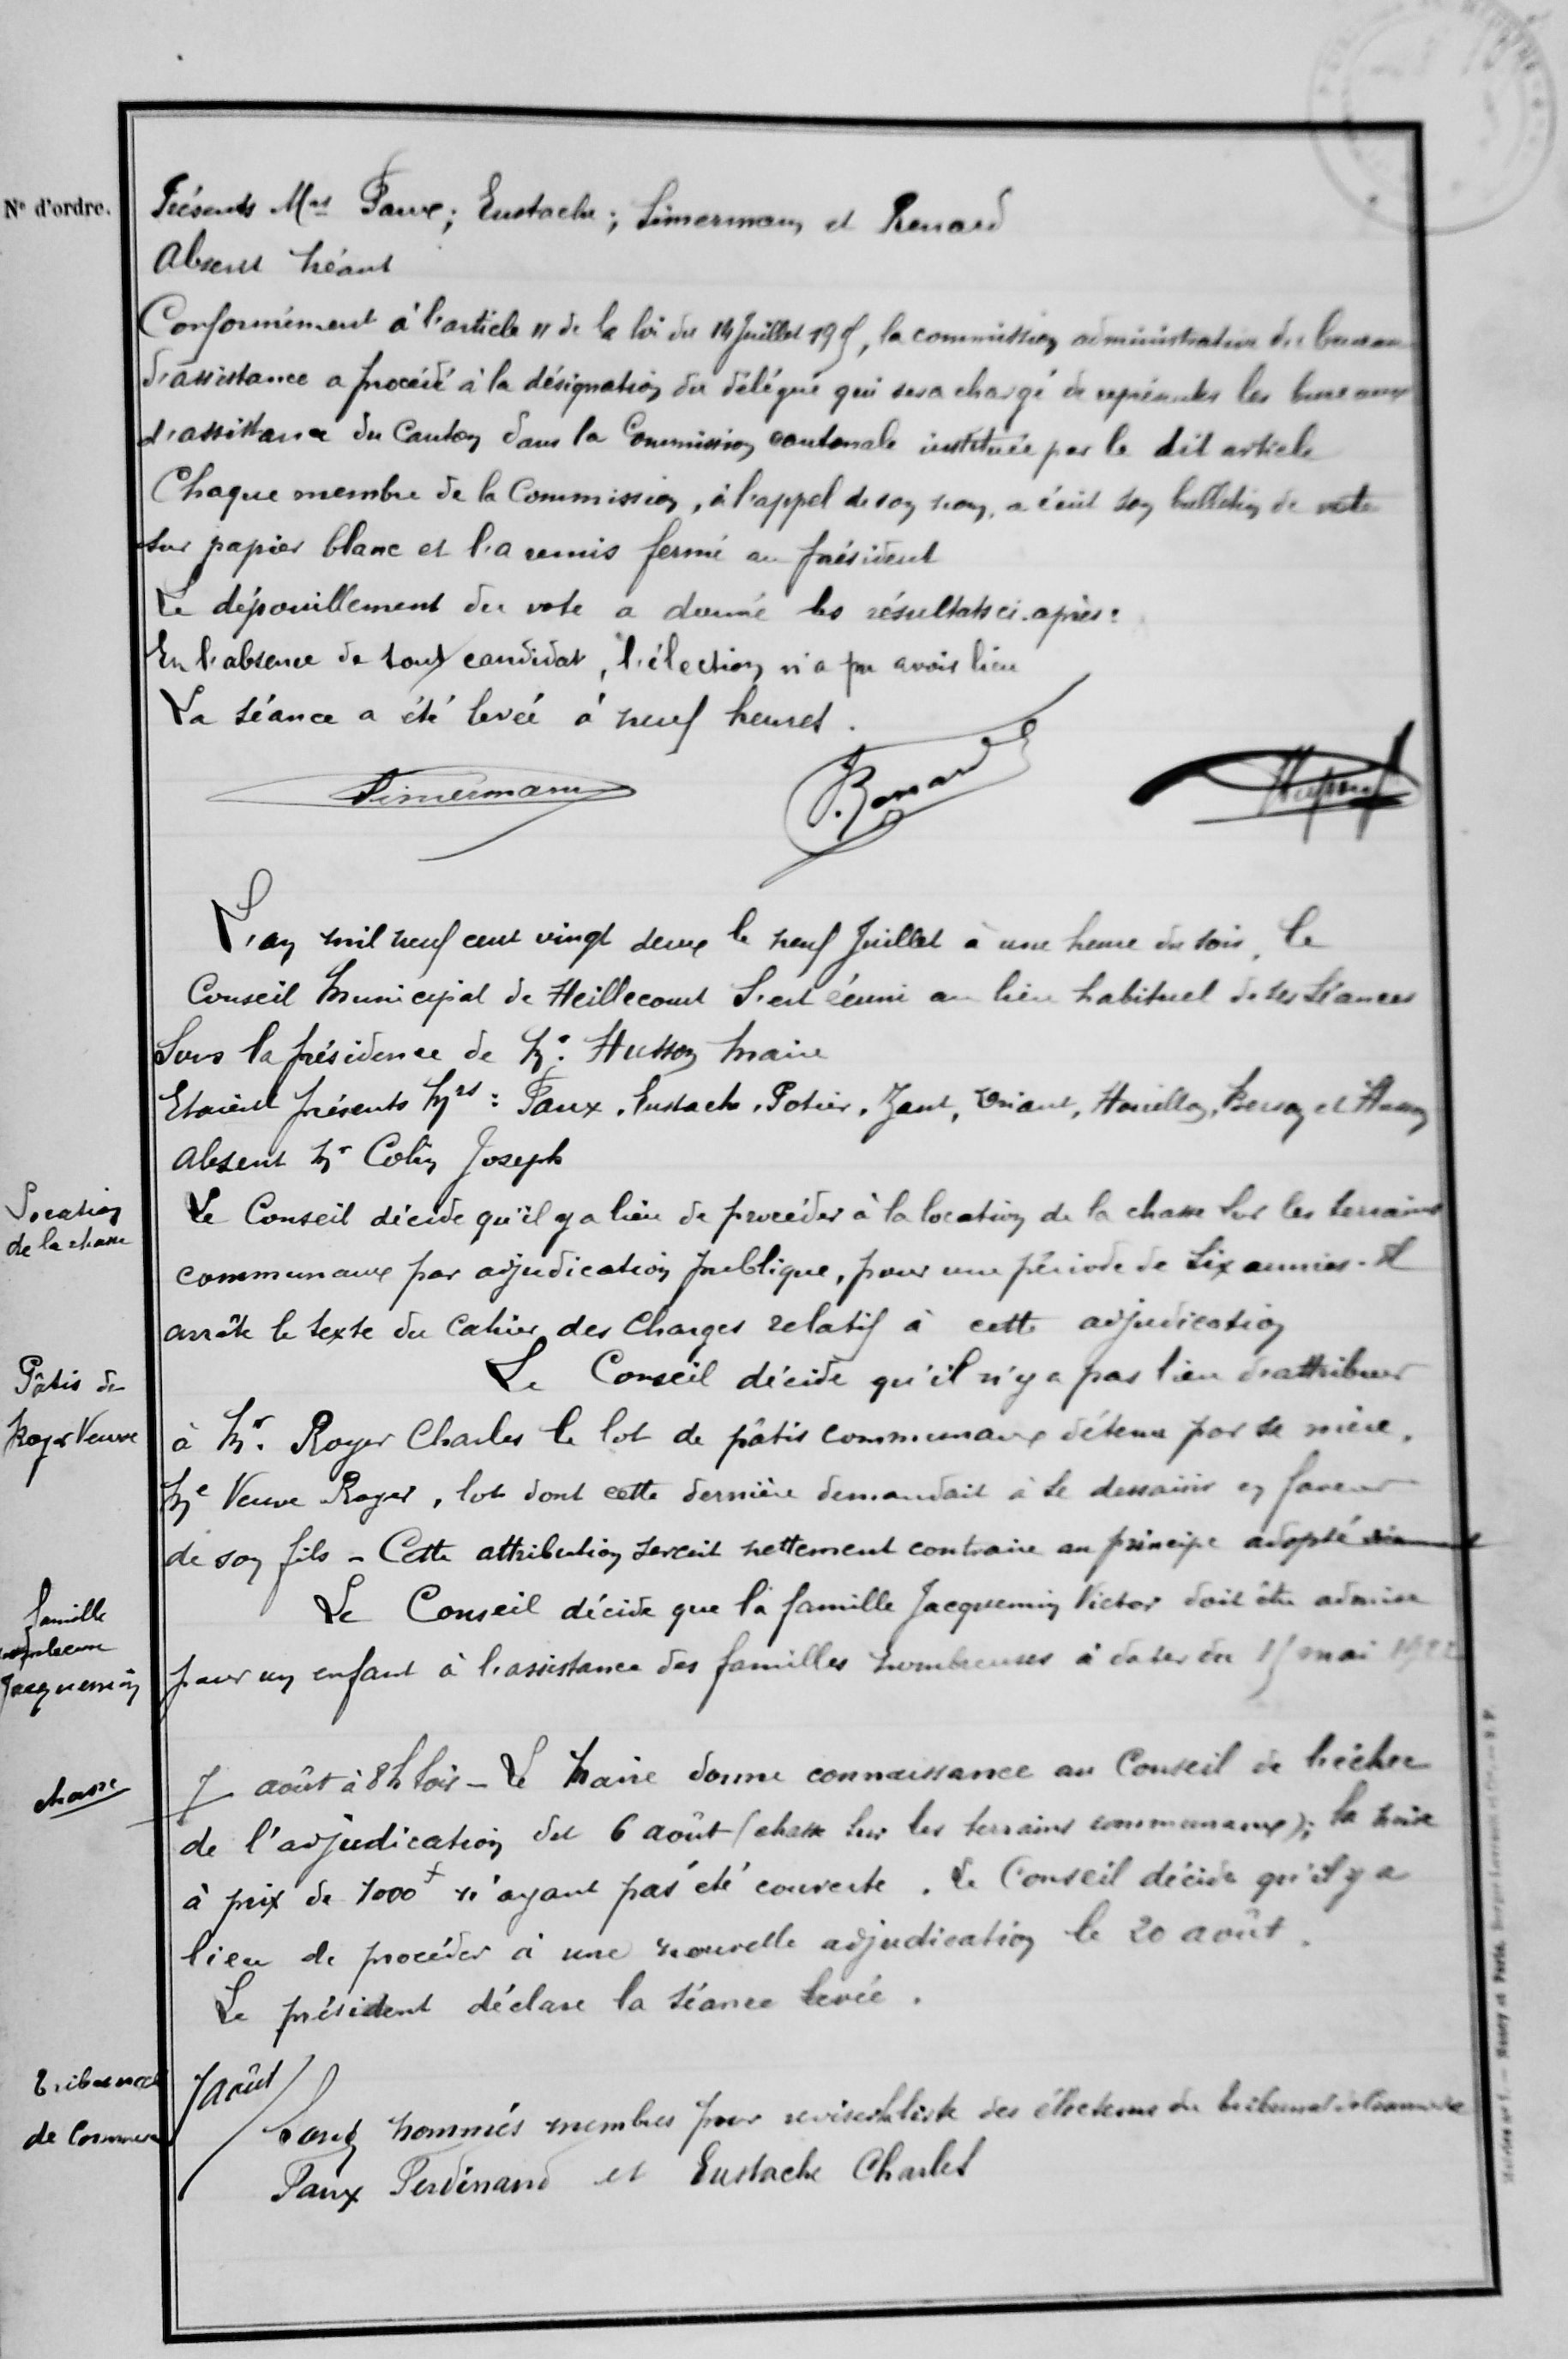 N° d'ordre.
Présents Mrs Paux; Eustache; Simermann et Renard
Absent Néant
Conformément à l'article 11 de la loi du 14 Juillet, la commission administrative du bureau
d'assistance a procédé à la désignation du délégué qui sera chargé de représenter les bureaux
d'assistance du Canton dans la Commission cantonale instituée par le dit article
Chaque membre de la Commission, à l'appel de son nom, a écrit son bulletin de vote
sur papier blanc et l'a remis fermé au président
Le dépouillement du vote a donné les résultats ci-après:
En l'absence de tout candidat, l'élection n'a pu avoir lieu
La séance a été levée à neuf heures.
Simermann
Renard
L'an mil neuf cent vingt deux le neuf Juillet à une heure du soir, le
Conseil Municipal de Heillecourt s'est réuni au lieu habituel de ses séances
Sous la présidence de Mr. Husson Maire
Etaient présents Mrs: Paux, Eustache, Potier, Zant, Briant, Houillon, Berson et Husson
Absent Mr Colin Joseph
Location
de la chasse
Le Conseil décide qu'il y a lieu de procéder à la location de la chasse sur les terrains
communaux par adjudication publique, pour une période de six années. Il
arrête le texte du Cahier des Charges relatif à cette adjudication
Pâtis de
Roger Veuve
Le Conseil décide qu'il n'y a pas lieu d'attribuer
à Mr. Roger Charles le lot de pâtis communaux détenu par sa mère,
Me Veuve Roger, lot dont cette dernière demandait à se dessaisir en faveur
de son fils - Cette attribution serait nettement contraire au principe adopté
famille
nombreuse
Jacquemin
Le Conseil décide que la famille Jacquemin Victor doit être admise
pour un enfant à l'assistance des familles nombreuses à dater du 15 mai 1922
chasse
7 août à 8h soir - Le Maire donne connaissance au Conseil de l'échec
de l'adjudication du 6 août (chasse sur les terrains communaux); la mise
à prix de 1000f n'ayant pas été couverte. Le Conseil décide qu'il y a
lieu de procéder à une nouvelle adjudication le 20 août.
Le président déclare la séance levée.
Tribunal
de Commerce
7 Août
Sont nommés membres pour reviser la liste des électeurs du tribunal de Commerce
Paux Ferdinand et Eustache Charles